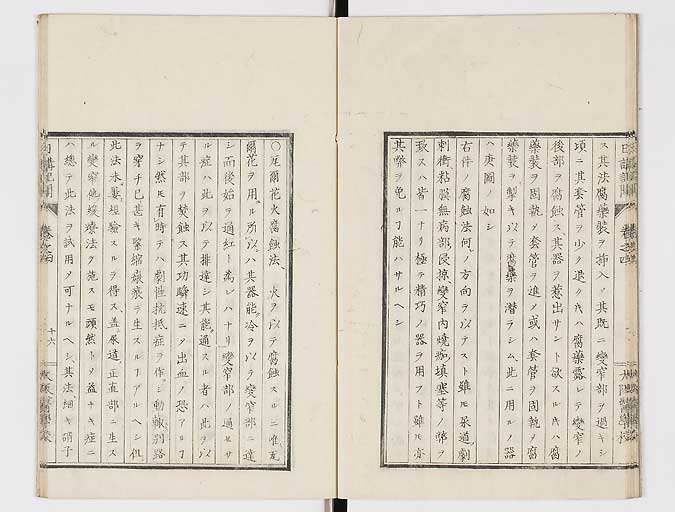 ス其法腐藥裝ヲ挿入メ其既ニ變窄部ヲ過キシ
項ニ其套管ヲ少ク退ク片ハ腐藥露レテ變窄ノ
後部ヲ腐蝕ス其器ヲ惹出サント欲スル片ハ腐
藥裝ヲ固執メ套管ヲ進メ或ハ套管ヲ固執メ腐
藥裝ヲ掣キ以テ腐藥ヲ潜ラシム此ニ用ルノ器
ハ庚圖ノ如シ
右件ノ腐蝕法何ノ方向ヲ以テスト雖モ尿道ノ劇
刺衝粘膜無病部ノ侵掠變窄内燒痂填塞等ノ弊ヲ
致スハ皆一ナリ極テ精巧ノ器ヲ用フト雖モ亦
其弊ヲ免ルヿ能ハサルヘシ
〇瓦爾花火腐蝕法 火ヲ以テ腐蝕スルニ唯瓦
爾花ヲ用ル所以ハ其器能冷ヲ以テ變窄部ニ達
シ而後始テ過紅ト為レハナリ變窄部ノ過セサ
ル症ハ此ヲ以テ排達シ其能過スル者ハ此ヲ以
テ其部ヲ焚蝕ス其功瞬速ニメ出血ノ恐アルヿ
ナシ然モ有時テハ劇性抗抵症ヲ作シ動輙別路
ヲ穿チ已甚キ緊縮瘢痕ヲ生スルヿアルヘシ但
此法未屢經驗スルヲ得ス蓋尿道正直部ニ生ス
ル變窄他ノ療法ヲ施スモ頑然トメ益ナキ症ニ
ハ總テ此法ヲ試用メ可ナルヘシ其法細キ硝子
日講記聞
卷之四
十六